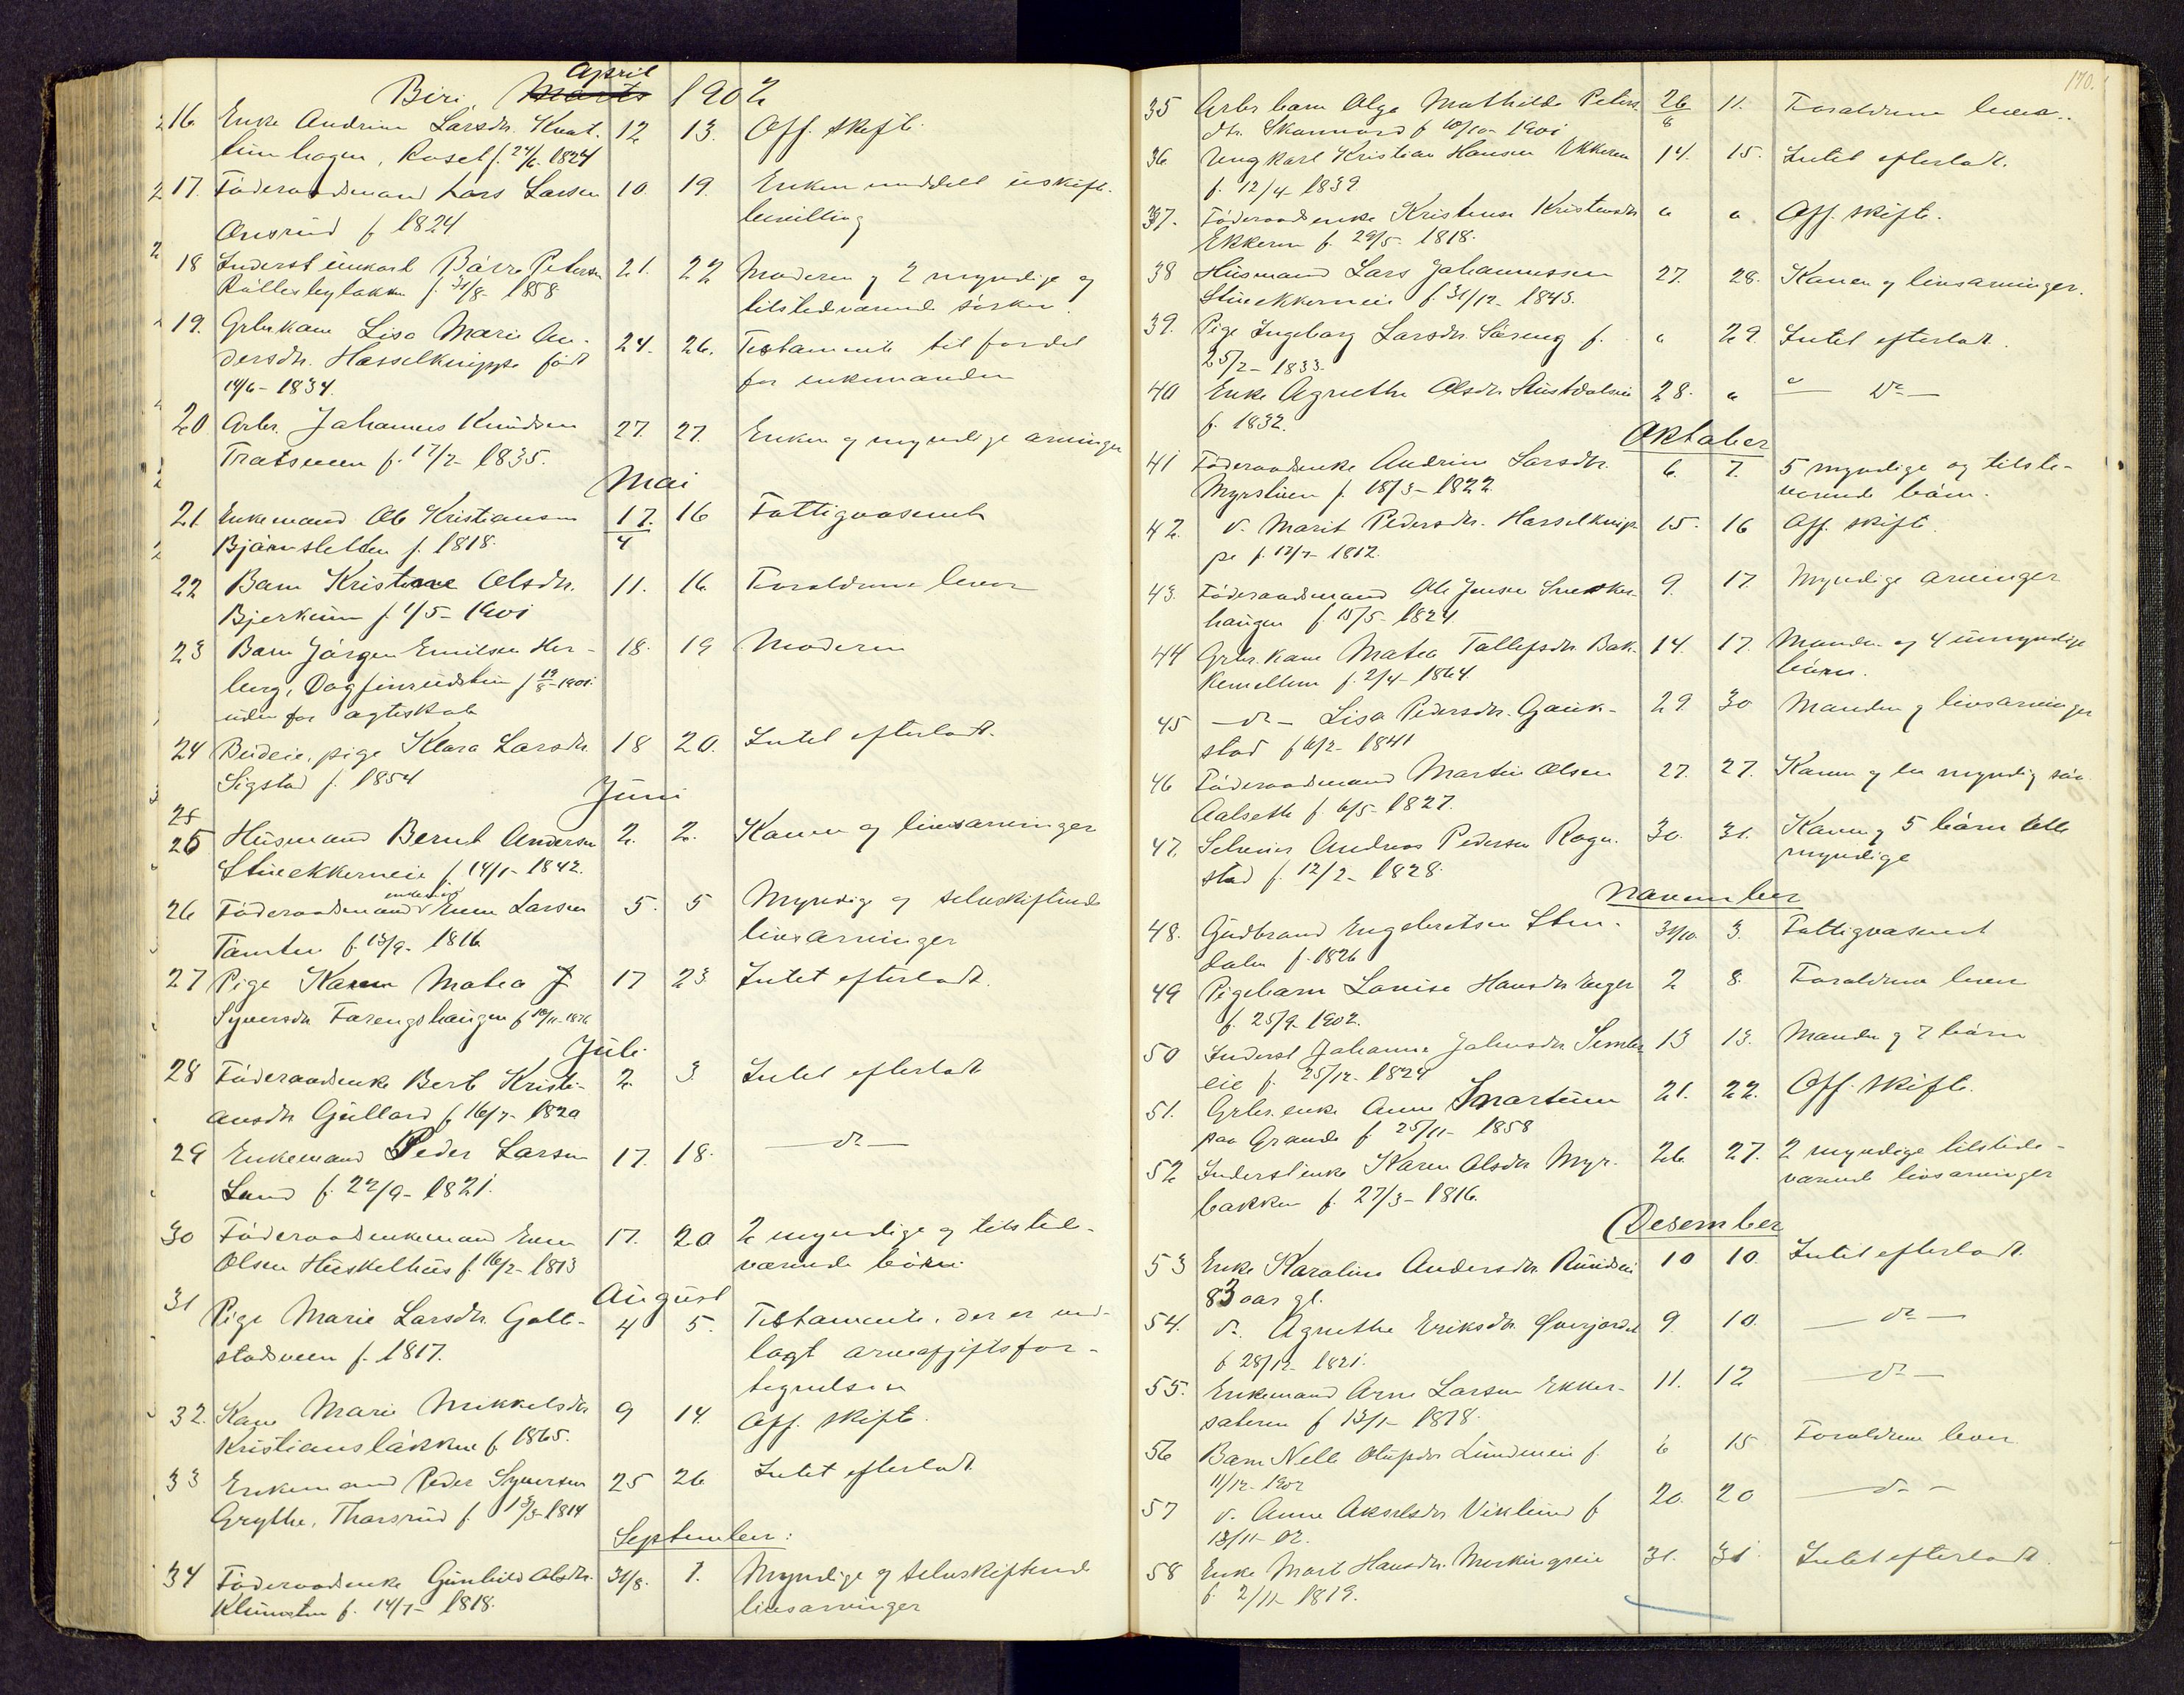 Biri, April 1902
16 Enke Andrine Larsdtr. 12 13. Off. skifte
hagen, f. 24/6. 1824
17. Föderaadsmand Lars Larsen 10. 19. Enken meddelt uskifte-
Onsrud f 1824 bevilling
18 Inderst ünkarl Börre Peters. 21. 22 Moderen og 2 myndige og
f. 31/8- 1858 tilstedværende søsken.
19. Grbr.kone Lisa Marie An- 24. 26. Testamente til fordel
dersdtr. Hasselknippe født for enkemanden
14/6- 1834.
20 Arbr. Johannes Knüdsen 27. 27. Enken og myndige arvinger
f. 17/2- 1835.
Mai
21 Enkemand Ole Kristiansen 17./4 16 Fattigvæsenet
f. 1818.
22 Barn Kristine Olsdtr. 11. 16 Forældrene lever
Bjerkeim f. 1/5- 1901
23 Barn Jörgen Emilsen Her- 18. 19 Moderen
berg, f 19/8-1901.
uden for ægteskab
24 Budeie, pige Klara Larsdtr. 18 20. Intet efterladt.
Sigstad f. 1854
Juni
25
25 Husmand Bernt Andersen 2. 2. Konen og livsarvinger
Stuekkerneie f. 14/1- 1842.
26 Föderaadsmand Even Larsen 5. 5 Myndig og selvskiftende
f. 13/9- 1816 livsarvinger
27 Pige Karen Matea 17 23 Intet efterladt.
Syversdtr Farengshaugen f 10/11-1876
Juli
28 Föderaadsenke Berte Kristi- 2. 3 Intet efterladt
ansdtr Gullord f. 16/7- 1820
29 Enkemand Peder Larsen 17. 18. — do —
Lund f. 22/9- 1821.
30 Föderaadsenkemand Even 17. 20 2 myndige og tilstede-
Olsen Huskelhus f. 16/2- 1813 værende börn.
August
31 Pige Marie Larsdtr. Galt- 4 5. Testamente, der er ved-
stadsveen f. 1817. lagt arveafgiftsfor-
tegnelsen
32. Kone Marie Mikkelsdtr 9 14. Off. skifte.
Kristiansløkken f. 1865.
33 Enkemand Peder Syversen 25 26 Intet efterladt
Grythe, Tharsrud f. 13/3-1814
September:
34 Föderaadsenke Gunhild Olsdtr. 31/8. 1. Myndige og selvskiftende
f. 14/7- 1818. livsarvinger
170.
35 Arbr barn Olga Mathilde Peters 26/8 11. Forældrene lever..
dtr. Skonnord f 10/10- 1901
36. Ungkarl Kristian Hansen Ekkeren 14. 15. Intet efterladt.
f. 12/4- 1839.
37. Föderaadsenke Kristense Kristensdtr " " Off. skifte.
Ekkeren f. 29/5- 1818.
38 Husmand Lars Johannessen 27. 28. Konen og livsarvinger.
Stuekkerneie f. 31/12- 1843.
39. Pige Ingeborg Larsdtr. Söreng f. " 29. Intet efterladt.
25/2- 1833.
40 Enke Agnethe Olsdtr. 28. " — do —
f. 1832.
Oktober
41 Föderaadsenke Andrine Larsdtr. 6. 7. 5 myndige og tilste-
Myrstuen f. 18/3- 1822. værende börn.
42. do. Marit Pedersdtr. Hasselknip- 15. 16 Off. skifte.
pe f. 12/7- 1812.
43. Föderaadsmand Ole Jensen 9. 17. Myndige arvinger
haugen f. 15/5- 1824
44 Grbr. kone Matea Tollefsdtr. Bak- 14. 17. Manden og 4 umyndige
f. 2/4- 1864. börn.
45 — do — Lisa Pedersdtr. Gauk- 29 30 Manden og livsarvinger
stad f 6/2- 1841
46 Föderaadsmand Martin Olsen 27. 27. Konen og en myndig søn
Aalseth f 6/5- 1827.
47. Selveier Andreas Pedersen Rogn- 30. 31. Konen og 5 börn
stad f. 12/2- 1828. myndige
November
48. Gudbrand Engebretsen Sten- 31/10 3. Fattigvæsenet
dalen f. 1826
49 Pigebarn Lovise Hansdtr 2 8. Forældrene lever
f. 25/9- 1902.
50 Inderst Johanne Johnsdtr 13 13. Manden og 7 börn
eie f. 25/12- 1824
51. Grbr. enke Anne Svartuen 21. 22. Off. skifte.
paa Grande f. 25/11- 1858
52 Inderst enke Karen Olsdtr Myr- 26. 27. 2 myndige tilstede-
bakken f. 27/3- 1816. værende livsarvinger
Desember
53 Enke Karoline Andersdtr 10 10. Intet efterladt.
83 aar gl.
54. do. Agnethe Eriksdtr. Øverjordet 9. 10. — do —
f 28/12- 1821.
55. Enkemand Arne Larsen Ekker- 11. 12 — do —
sæteren f 13/1- 1818.
56 Barn Nelle Olufsdtr f. 6 15 Forældrene lever
11/12- 1902
57 do. Anne Akselsdtr Viklund f 20. 20 — do —
13/11- 02.
58 Enke Marit Hansdtr. 31. 31. Intet efterladt.
f. 2/11- 1819.